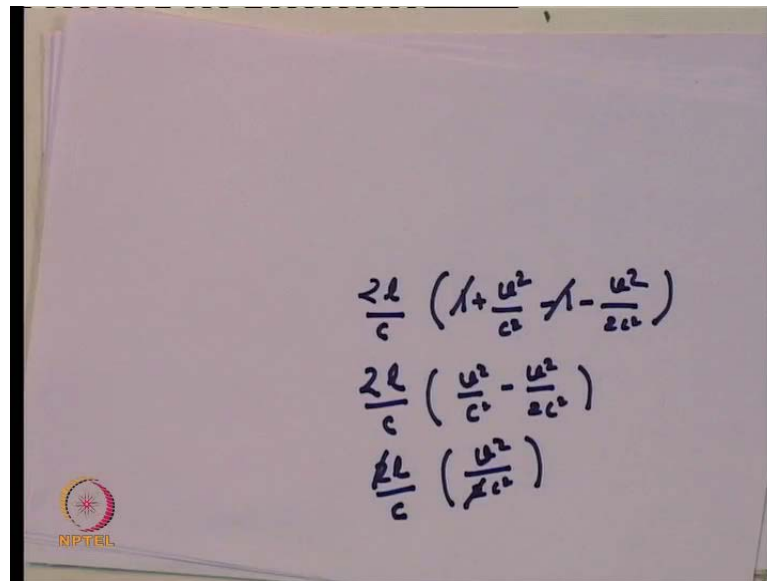 2l/c (1 + u²/c² - 1 - u²/2c²)
2l/c (u²/c² - u²/2c²)
2l/c (u²/2c²)
NPTEL